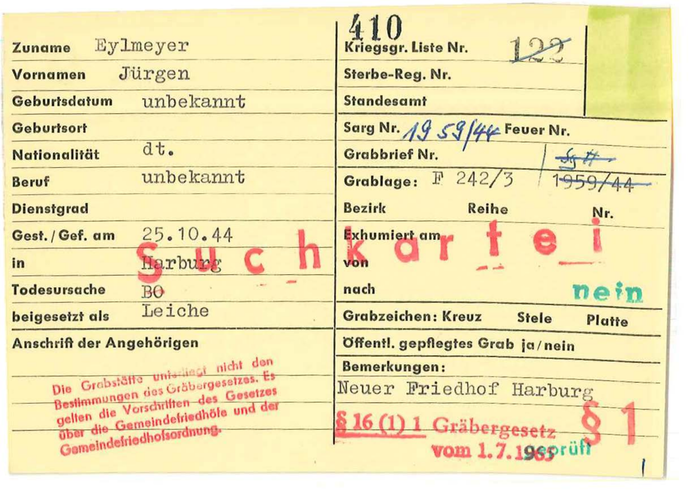 Zuname Eylmeyer
Vornamen Jürgen
Geburtsdatum unbekannt
Geburtsort
Nationalität dt.
Beruf unbekannt
Dienstgrad
Gest./Gef. am 25.10.44
in Harburg
Todesursache BO
beigesetzt als Leiche
Anschrift der Angehörigen
Die Grabstätte unterliegt nicht den
Bestimmungen des Gräbergesetzes. Es
gelten die Vorschriften des Gesetzes
über die Gemeindefriedhöfe und der
Gemeindefriedhofsordnung.
Suchkartei
410
Kriegsgr. Liste Nr. 122
Sterbe-Reg. Nr.
Standesamt
Sarg Nr. 1959/44 Feuer Nr.
Grabbrief Nr.
Grablage: F 242/3 1959/44
Bezirk Reihe Nr.
Exhumiert am
von
nach nein
Grabzeichen: Kreuz Stele Platte
Öffentl. gepflegtes Grab ja/nein
Bemerkungen:
Neuer Friedhof Harburg
§ 16 (1) 1 Gräbergesetz
vom 1.7.1965
§ 1
geprüft